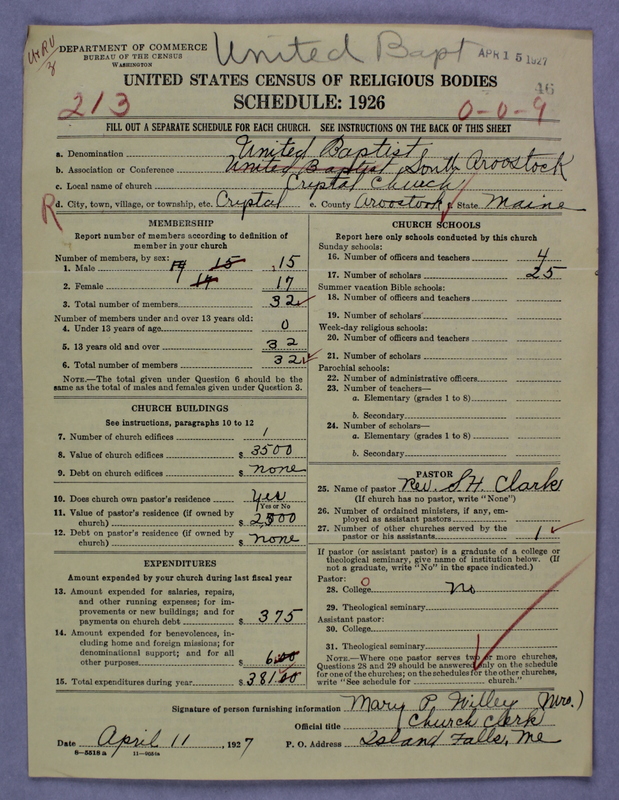 U+RU
3
DEPARTMENT OF COMMERCE
BUREAU OF THE CENSUS
WASHINGTON
United Bapt
APR 15 1927
UNITED STATES CENSUS OF RELIGIOUS BODIES
46
213
SCHEDULE: 1926
0-0-9
FILL OUT A SEPARATE SCHEDULE FOR EACH CHURCH. SEE INSTRUCTIONS ON THE BACK OF THIS SHEET
a. Denomination United Baptist
b. Association or Conference United Baptist South Aroostook
c. Local name of church Crystal Church
R
d. City, town, village, or township, etc. Crystal e. County Aroostook f. State Maine
MEMBERSHIP
Report number of members according to definition of
member in your church
Number of members, by sex:
1. Male 14 15 15
2. Female 17 17
3. Total number of members 32
Number of members under and over 13 years old:
4. Under 13 years of age 0
5. 13 years old and over 32
6. Total number of members 32
NOTE.—The total given under Question 6 should be the
same as the total of males and females given under Question 3.
CHURCH BUILDINGS
See instructions, paragraphs 10 to 12
7. Number of church edifices 1
8. Value of church edifices $ 3500
9. Debt on church edifices $ none
10. Does church own pastor's residence yes
(Yes or No)
11. Value of pastor's residence (if owned by
church) $ 2500
12. Debt on pastor's residence (if owned by
church) $ none
EXPENDITURES
Amount expended by your church during last fiscal year
13. Amount expended for salaries, repairs,
and other running expenses; for im-
provements or new buildings; and for
payments on church debt $ 375
14. Amount expended for benevolences, in-
cluding home and foreign missions; for
denominational support; and for all
other purposes $ 6.00
15. Total expenditures during year $ 381.00
CHURCH SCHOOLS
Report here only schools conducted by this church
Sunday schools:
16. Number of officers and teachers 4
17. Number of scholars 25
Summer vacation Bible schools:
18. Number of officers and teachers
19. Number of scholars
Week-day religious schools:
20. Number of officers and teachers
21. Number of scholars
Parochial schools:
22. Number of administrative officers
23. Number of teachers—
a. Elementary (grades 1 to 8)
b. Secondary
24. Number of scholars—
a. Elementary (grades 1 to 8)
b. Secondary
PASTOR
25. Name of pastor Rev. S. H. Clark
(If church has no pastor, write "None")
26. Number of ordained ministers, if any, em-
ployed as assistant pastors
27. Number of other churches served by the
pastor or his assistants 1
If pastor (or assistant pastor) is a graduate of a college or
theological seminary, give name of institution below. (If
not a graduate, write "No" in the space indicated.)
Pastor:
28. College 0 no
29. Theological seminary
Assistant pastor:
30. College
31. Theological seminary
NOTE.—Where one pastor serves two or more churches,
Questions 28 and 29 should be answered only on the schedule
for one of the churches; on the schedules for the other churches,
write "See schedule for church."
Signature of person furnishing information Mary P. Willey (Mrs.)
Official title Church Clerk
Date April 11, 1927 P. O. Address Island Falls, Me
8-5518 a